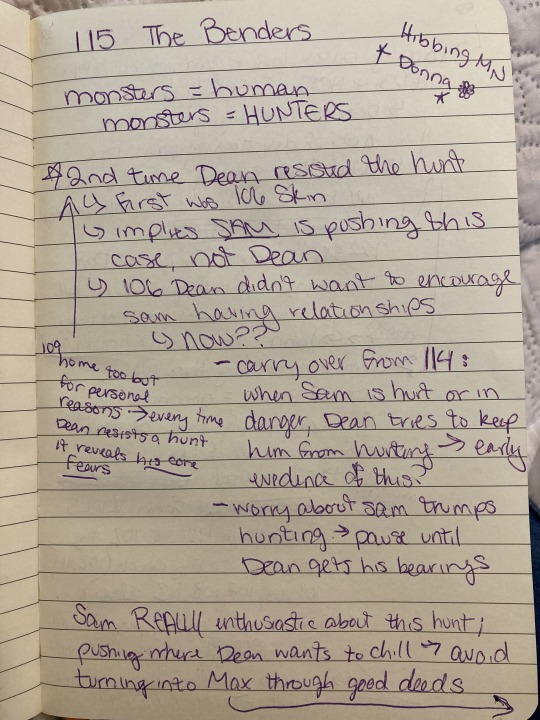 115 The Benders
Hibbing MN
* Donna *
monsters = human
monsters = HUNTERS
☆ 2nd time Dean resisted the hunt
↳ First was 106 Skin
↳ implies SAM is pushing this
case, not Dean
↳ 106 Dean didn't want to encourage
sam having relationships
↳ now??
109
home too but
for personal
reasons → every time
Dean resists a hunt
it reveals his core
fears
- carry over from 114:
when Sam is hurt or in
danger, Dean tries to keep
him from hurting → early
evidence of this?
- worry about sam trumps
hunting → pause until
Dean gets his bearings
Sam REALLY enthusastic about this hunt;
pushing where Dean wants to chill → avoid
turning into Max through good deeds